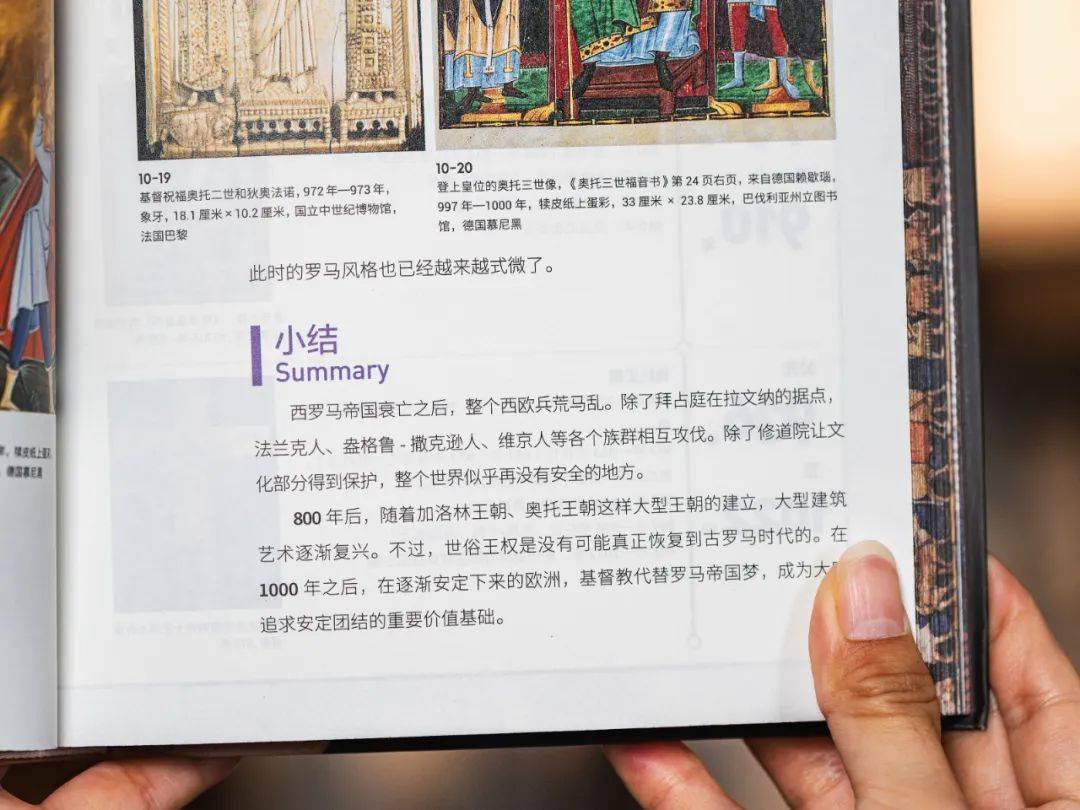 10-19
基督祝福奥托二世和狄奥法诺，972 年—973 年，
象牙，18.1 厘米 × 10.2 厘米，国立中世纪博物馆，
法国巴黎
10-20
登上皇位的奥托三世像，《奥托三世福音书》第 24 页右页，来自德国赖歇瑙，
997 年—1000 年，犊皮纸上蛋彩，33 厘米 × 23.8 厘米，巴伐利亚州立图书
馆，德国慕尼黑
此时的罗马风格也已经越来越式微了。
犊皮纸上蛋彩
德国慕尼黑
小结
Summary
西罗马帝国衰亡之后，整个西欧兵荒马乱。除了拜占庭在拉文纳的据点，
法兰克人、盎格鲁 - 撒克逊人、维京人等各个族群相互攻伐。除了修道院让文
化部分得到保护，整个世界似乎再没有安全的地方。
800 年后，随着加洛林王朝、奥托王朝这样大型王朝的建立，大型建筑
艺术逐渐复兴。不过，世俗王权是没有可能真正恢复到古罗马时代的。在
1000 年之后，在逐渐安定下来的欧洲，基督教代替罗马帝国梦，成为大
追求安定团结的重要价值基础。